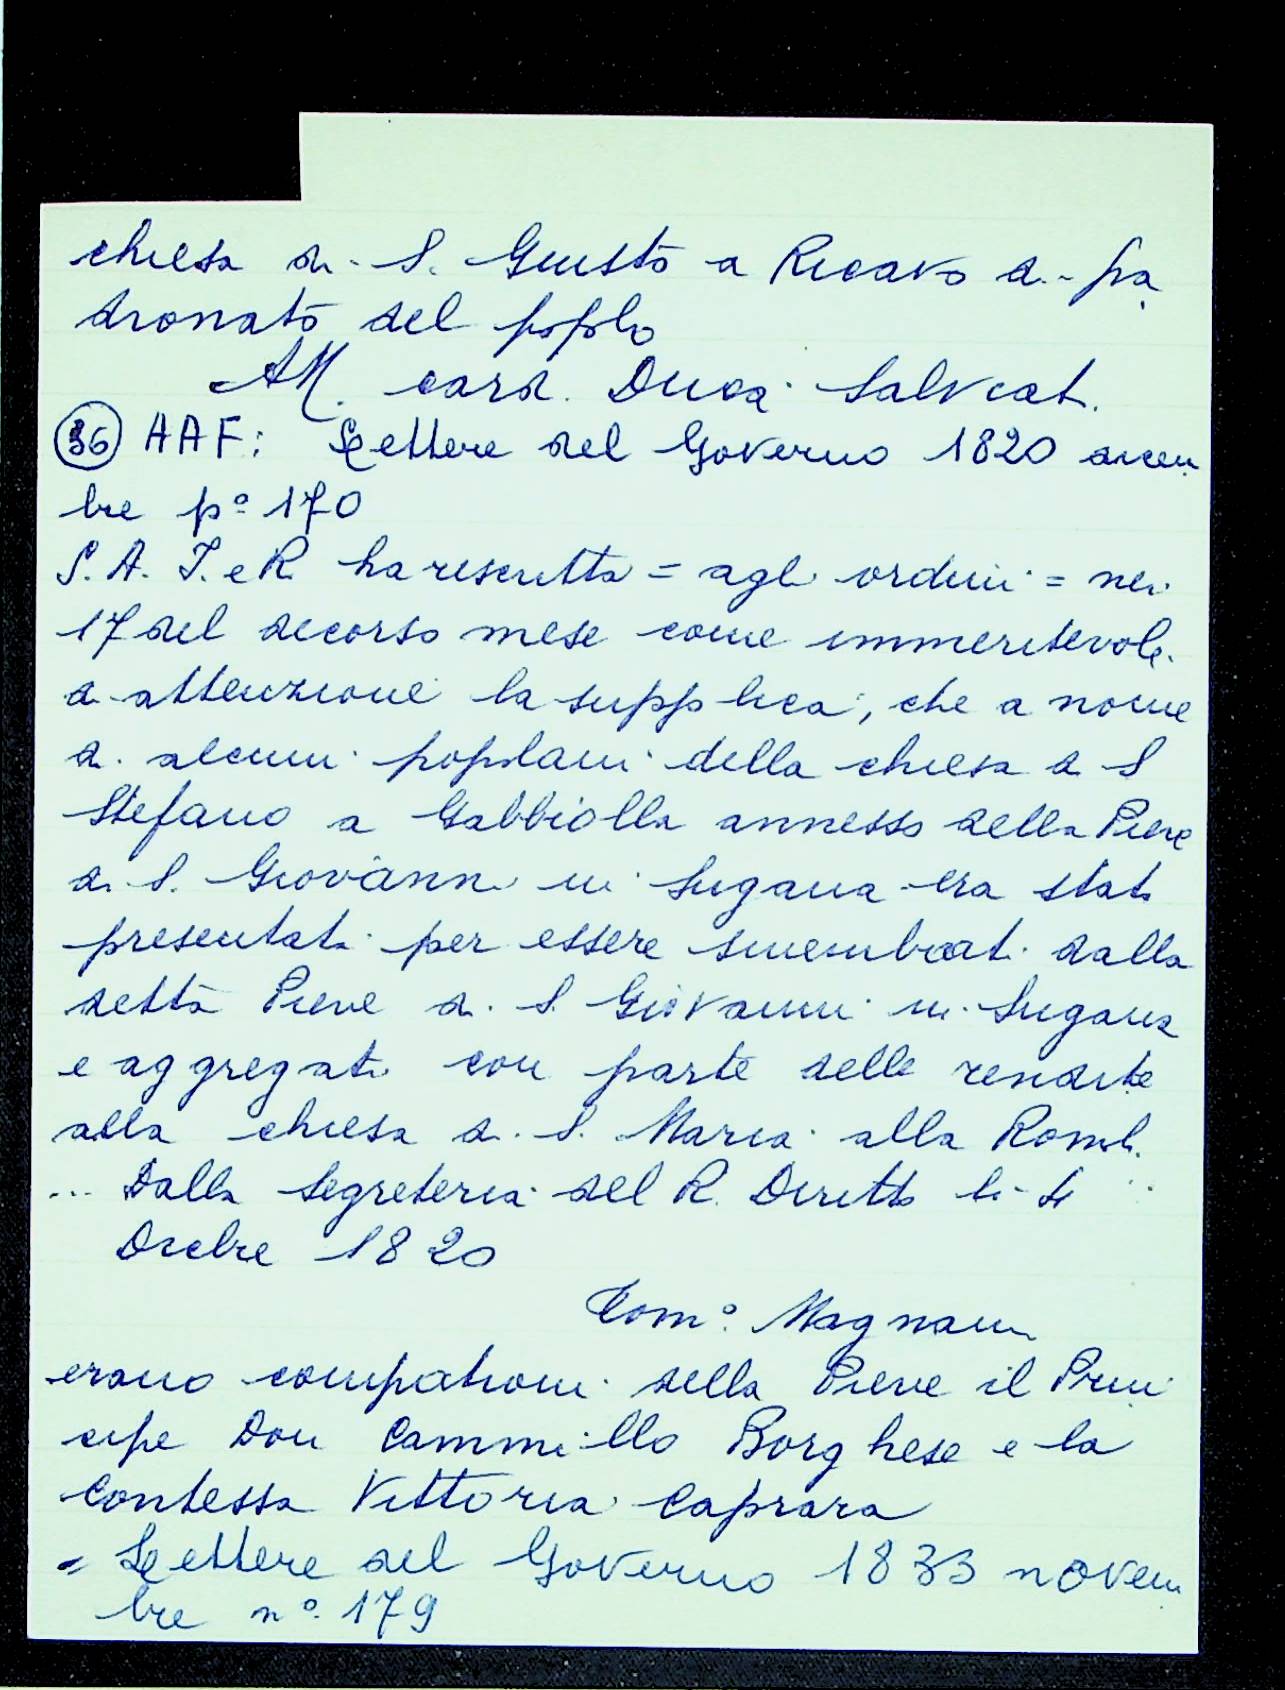 chiesa di S. Giusto a Ricavo di pa
dronato del popolo
AM. card. Duca Salviati.
36 AAF: Lettere del Governo 1820 dicem
bre p° 170
S. A. I. e R. ha rescritta = agli ordini = nei
17 del decorso mese come immeritevole
di attenzione la supplica, che a nome
di alcuni popolani della chiesa di S
Stefano a Gabbiolla annesso della Pieve
di S. Giovanni in Sugana era stata
presentata per essere smembrati dalla
detta Pieve di S. Giovanni in Sugana
e aggregati con parte delle rendite
alla chiesa di S. Maria alla Romola
... Dalla Segreteria del R. Diritto li
Dicbre 1820
Tom°. Magnani
erano compatroni della Pieve il Prin
cipe Don Cammillo Borghese e la
Contessa Vittoria Caprara
= Lettere del Governo 1833 novem
bre n°. 179